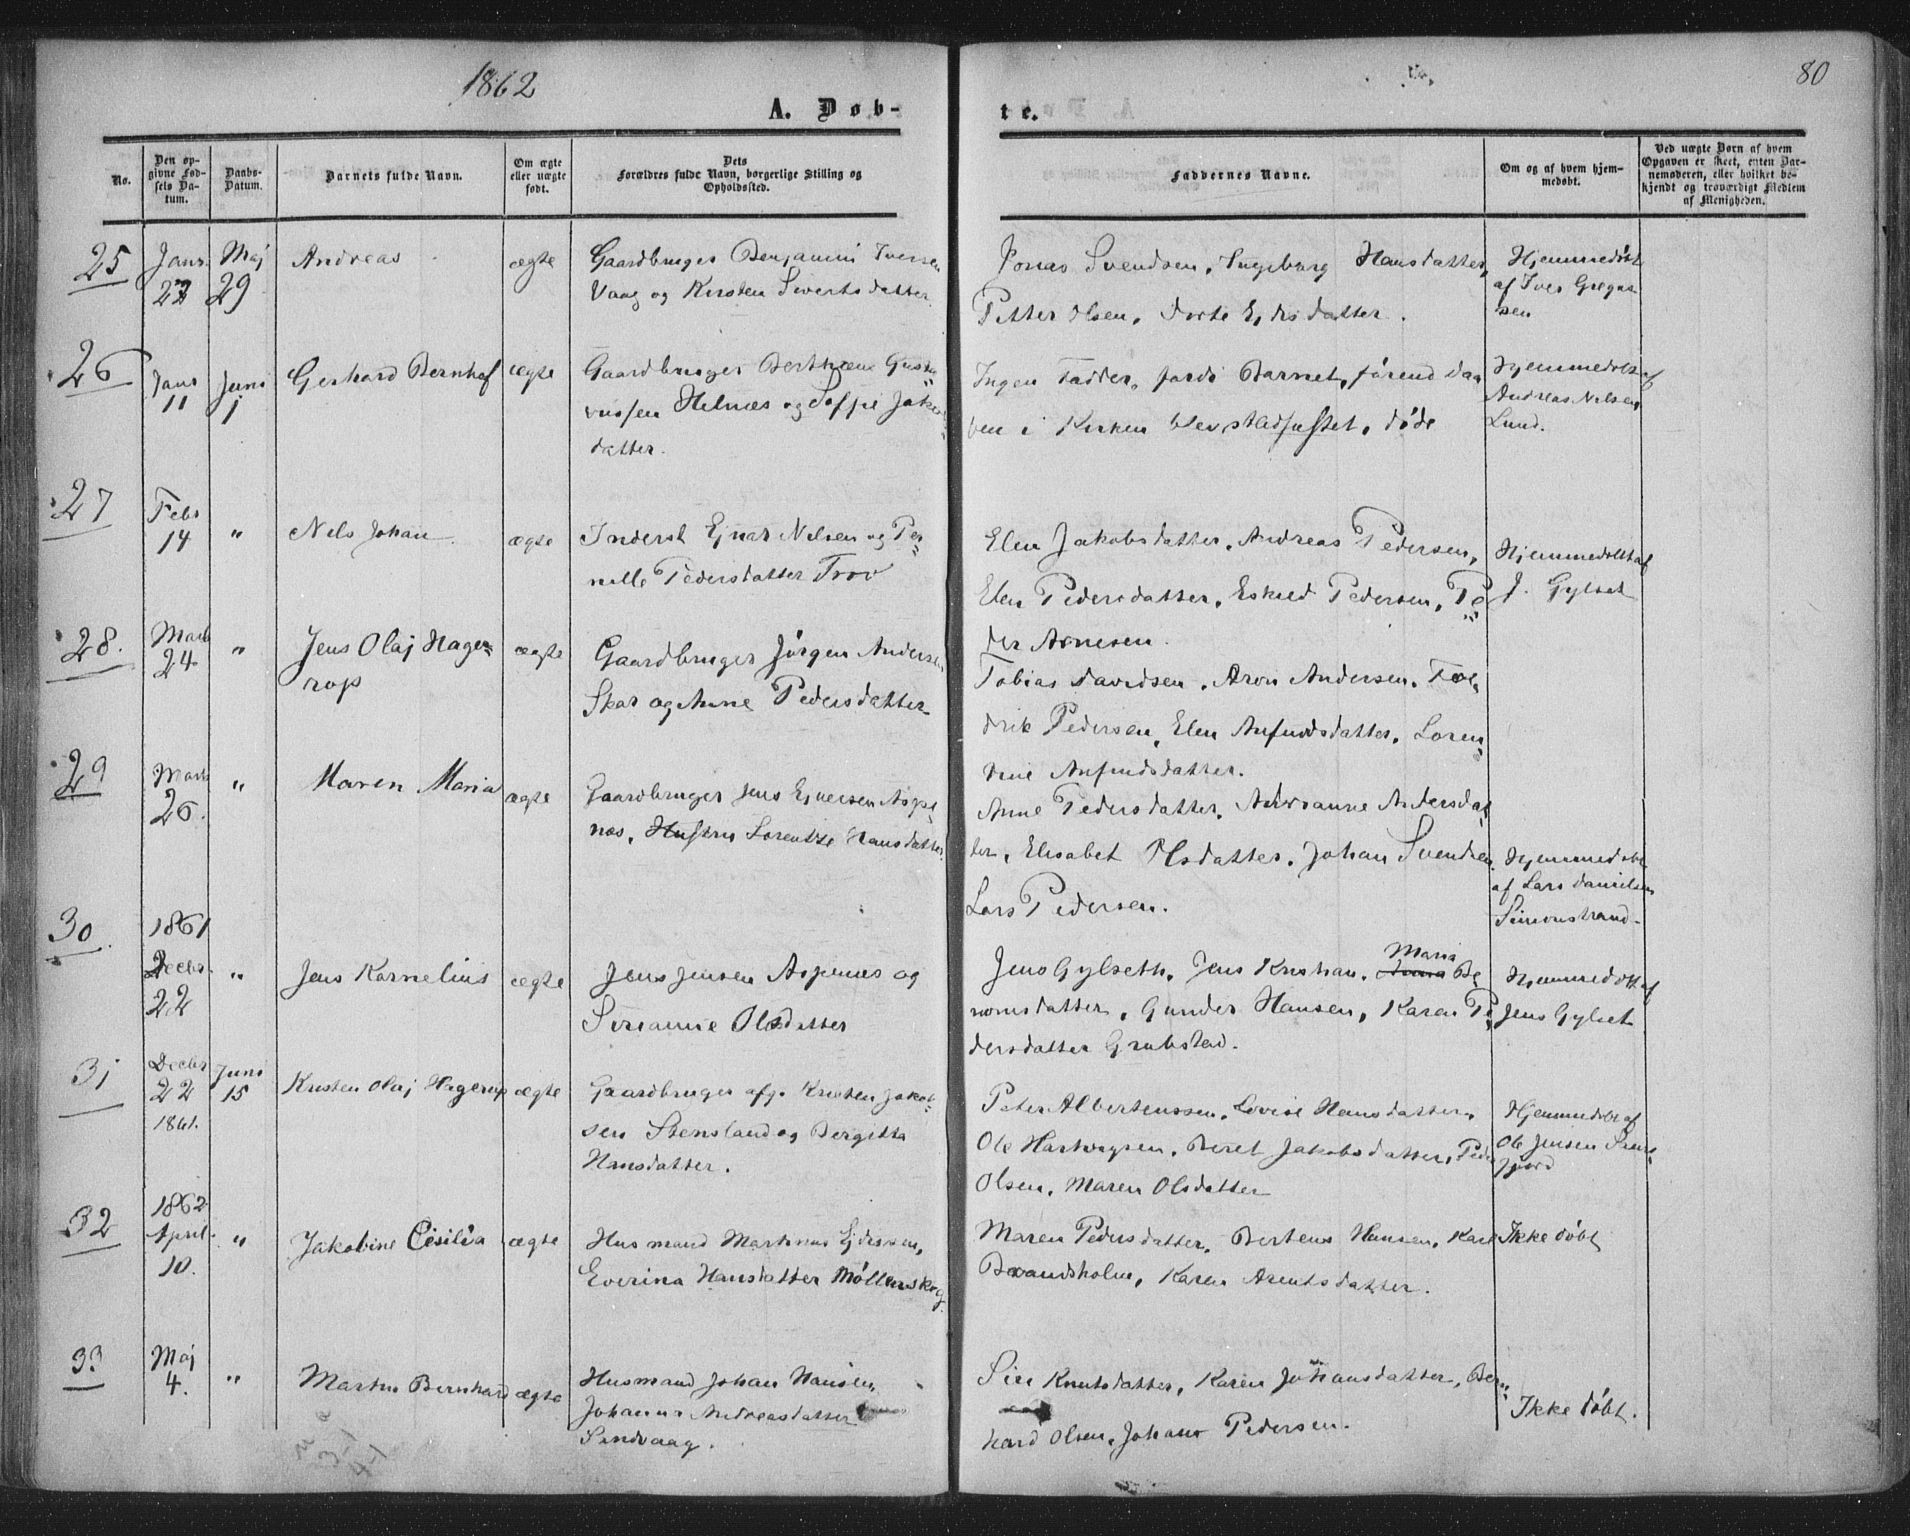 1862
80
A. Døb-
te.
No.
Den op-
givne Fød-
sels Da-
tum.
Daabs-
Datum.
Barnets fulde Navn.
Om ægte
eller uægte
født.
Dets
Forældres fulde Navn, borgerlige Stilling og
Opholdssted.
Faddernes Navne.
Om og af hvem hjem-
medøbt.
Ved uægte Børn af hvem
Opgaven er skeet, enten Bar-
nemoderen, eller hvilket be-
kjendt og troværdigt Medlem
af Menigheden.
25
Janr
Maj
29
Andreas
ægte
Gaardbruger Benjamin Iversen
Vaag og Kirsten Sivertsdatter
Jonas Svendsen, Ingeborg Hansdatter,
Petter Olsen, Dorte Ejdisdatter.
Hjemmedøbt
af Iver Gregus
sen
26
Janr
11
Juni
1
Gerhard Bernhof
ægte
Gaardbruger Berthæus Gusta
vussen Helnæs og Soffie Jakobs
datter.
Ingen Fadder, fordi Barnet, førend Daa
ben i Kirken blev stadfæstet, døde
Hjemmedøbt af
Andreas Nilsen
Lund.
27
Febr
14
"
Nels Johan
ægte
Inderst Ejnar Nelsen og Per
nelle Pedersdatter Trov
Elen Jakobsdatter, Andreas Pedersen,
Elen Pedersdatter, Eskild Pedersen, Pe
der Arnesen.
Hjemmedøbt af
J. Gylset
28.
Marts
24
"
Jens Olaj Hage
rop
ægte
Gaardbruger Jørgen Andersen
Skar og Anne Pedersdatter
Tobias Davidsen, Aron Andersen, Fre
drik Pedersen, Elen Anfindsdatter, Loren
dine Anfindsdatter.
29
Marts
26.
"
Maren Maria
ægte
Gaardbruger Jens Ejversen Aspe
næs, Hustru Lorentze Hansdatter.
Anne Pedersdatter, Adrianne Andersdat
ter, Elisabet Olsdatter, Johan Svendsen
Lars Pedersen.
Hjemmedøbt
af Lars Danielsen
Simonstrand.
30.
1861
Decbr
22
"
Jens Kornelius
ægte
Jens Jensen Aspenæs og
Sirianne Olsdatter
Maria
Jens Gylseth, Jens Kristian, Anna Be
nomsdatter, Gunder Hansen, Karen Pe
dersdatter Grubstad.
Hjemmedøbt af
Jens Gylset
31
Decbr
22
1861.
Juni
15
Kristen Olaj Hagerup
ægte
Gaardbruger afg. Kristen Jakob
sen Stensland og Bergitta
Hansdatter.
Peter Albertenssen, Lovise Hansdatter,
Ole Hartvigsen, Beret Jakobsdatter, Peder
Olsen, Maren Olsdatter
Hjemmedøbt af
Ole Jensen
fjord
32
1862
April
10.
"
Jakobine Cisilia
ægte
Husmand Martinus Ejdissen,
Everina Hansdatter Möllerskog.
Maren Pedersdatter, Bertens Hansen, Karl
Brandsholm, Karen Arentsdatter.
Ikke døbt
33
Maj
4.
"
Martin Bernhard
ægte
Husmand Johan Hansen,
Johanna Andreasdatter
Sandvaag.
Siri Knutsdatter, Karen Johansdatter, Bern
hard Olsen, Johan Pedersen.
Ikke døbt.